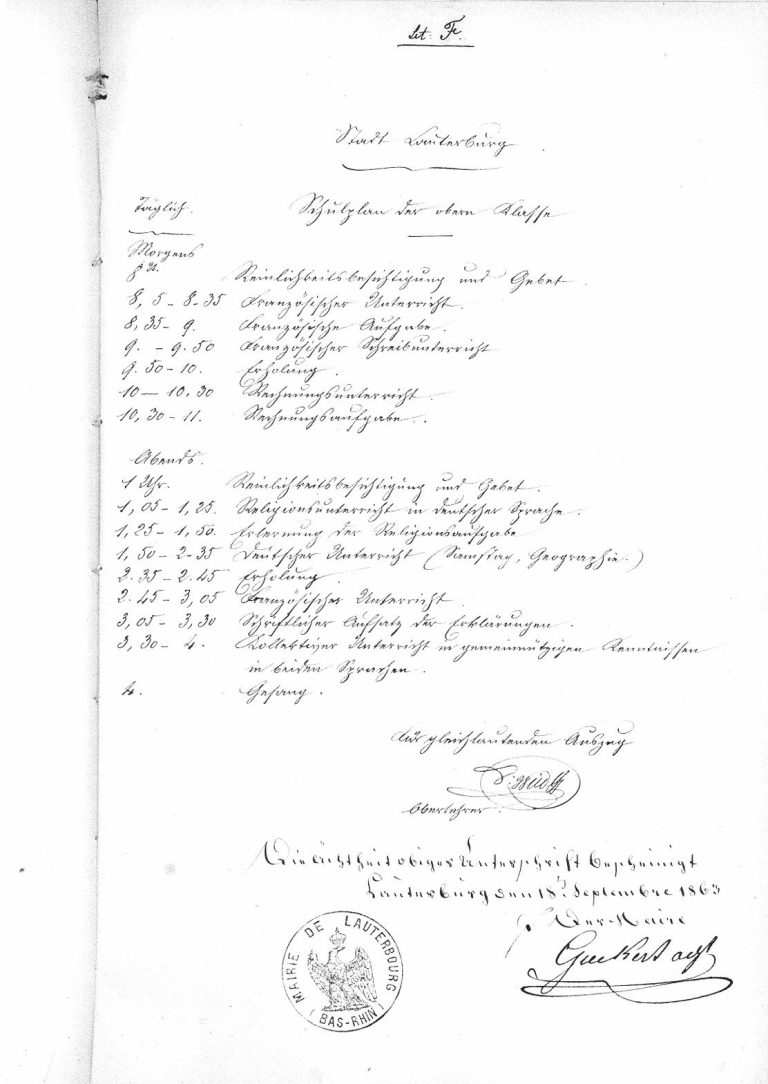 Lit: F.
Stadt Lauterburg
Täglich. Schulplan der obern Klasse
Morgens
8 U. Reinlichkeitsbesichtigung und Gebet.
8, 5 - 8-35 Französischer Unterricht.
8, 35 - 9. Französische Aufgabe.
9. - 9.50 Französischer Schreibunterricht
9.50 - 10. Erholung.
10 — 10,30 Rechnungsunterricht.
10,30 - 11. Rechnungsaufgabe.
Abends.
1 Uhr. Reinlichkeitsbesichtigung und Gebet.
1,05 - 1,25. Religionsunterricht in deutscher Sprache.
1,25 - 1,50. Erlernung der Religionsaufgabe
1,50 - 2-35 Deutscher Unterricht (Samstag, Geographie.)
2.35 - 2.45 Erholung.
2.45 - 3,05 Französischer Unterricht.
3,05 - 3,30 Schriftlicher Aufsatz der Erklärungen.
3,30 - 4. Kollektiver Unterricht in gemeinnützigen Kenntnissen
in beiden Sprachen.
4. Gesang.
Für gleichlautenden Auszug
Oberlehrer.
Die Ächtheit obiger Unterschrift bescheinigt
Lauterburg den 18ten Septembre 1863
Der Maire
MAIRIE DE LAUTERBOURG
(BAS-RHIN)